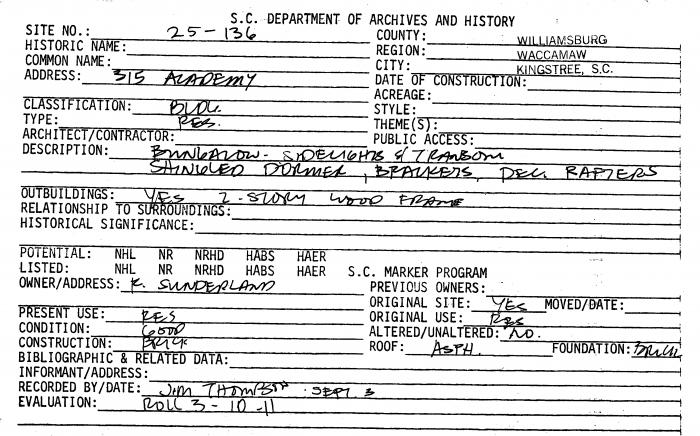 S.C. DEPARTMENT OF ARCHIVES AND HISTORY
SITE NO.: 25-136 COUNTY: WILLIAMSBURG
HISTORIC NAME: REGION: WACCAMAW
COMMON NAME: CITY: KINGSTREE, S.C.
ADDRESS: 315 ACADEMY DATE OF CONSTRUCTION:
ACREAGE:
CLASSIFICATION: BLDG. STYLE:
TYPE: RES. THEME(S):
ARCHITECT/CONTRACTOR: PUBLIC ACCESS:
DESCRIPTION: BUNGALOW - SIDELIGHTS & TRANSOM
SHINGLED DORMER, BRACKETS, DEC. RAFTERS
OUTBUILDINGS: YES 2-STORY WOOD FRAME
RELATIONSHIP TO SURROUNDINGS:
HISTORICAL SIGNIFICANCE:
POTENTIAL: NHL NR NRHD HABS HAER
LISTED: NHL NR NRHD HABS HAER S.C. MARKER PROGRAM
OWNER/ADDRESS: K. SUNDERLAND PREVIOUS OWNERS:
ORIGINAL SITE: YES MOVED/DATE:
PRESENT USE: RES ORIGINAL USE: RES
CONDITION: GOOD ALTERED/UNALTERED: NO.
CONSTRUCTION: BRICK ROOF: ASPH. FOUNDATION: BRICK
BIBLIOGRAPHIC & RELATED DATA:
INFORMANT/ADDRESS:
RECORDED BY/DATE: JIM THOMPSON SEPT 3
EVALUATION: ROLL 3-10-11